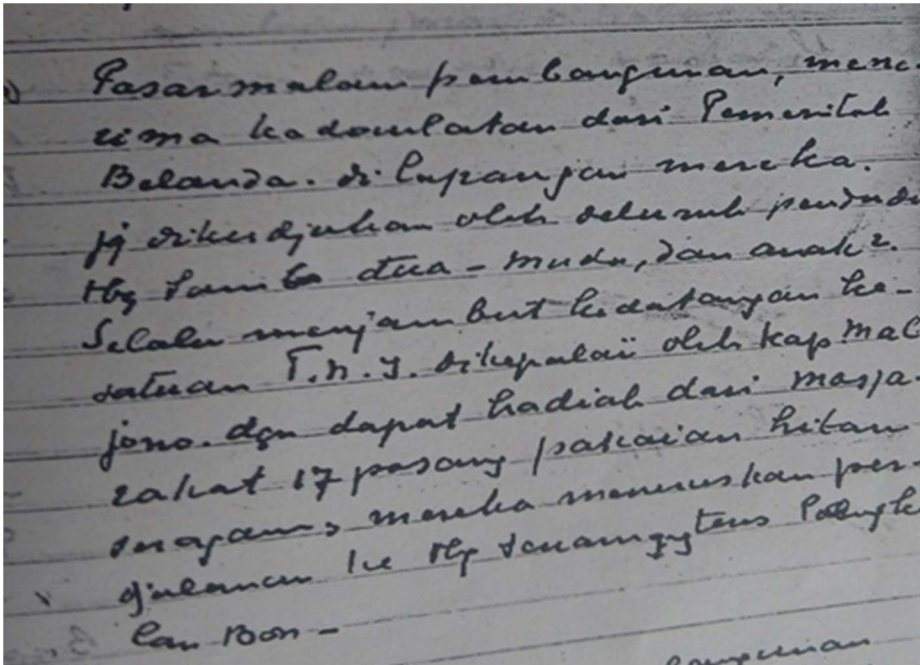 Pasar malam pembangunan, mene-
rima kadaulatan dari Pemeritah
Belanda. di lapangan mereka.
jg dikerdjakan oleh seluruh pendudu
tua - muda, dan anak2.
Selalu menjambut kedatangan ke-
satuan T.N.I. dikepalai oleh Kap. Mal
jono. dgn dapat hadiah dari masja-
rakat 17 pasang pakaian hitam
seragam, mereka meneruskan per-
djalanan ke terus